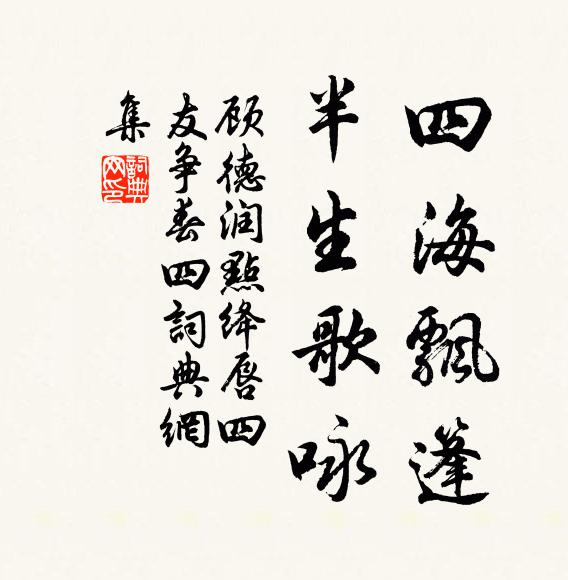 四海飄蓬
半生歌咏
顾德润點絳唇四
友争春四詞典網
集
詞典
网印